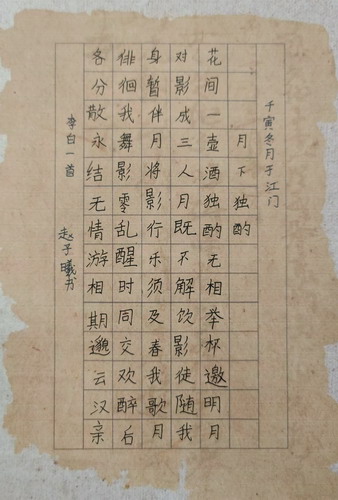 壬寅冬月于江门
月下独酌
花间一壶酒独酌无相举杯邀明月
对影成三人月既不解饮影徒随我
身暂伴月将影行乐须及春我歌月
徘徊我舞影零乱醒时同交欢醉后
各分散永结无情游相期邈云汉亲
李白一首
赵子曦书